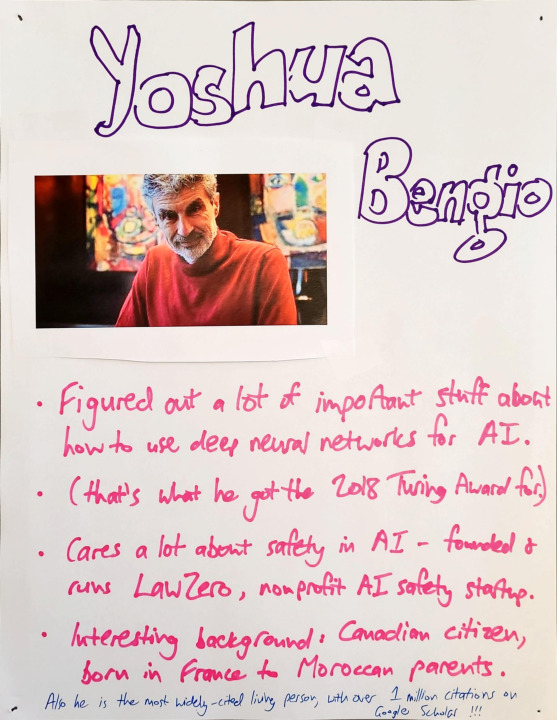 Yoshua
Bengio
• Figured out a lot of important stuff about
how to use deep neural networks for AI.
• (that's what he got the 2018 Turing Award for)
• Cares a lot about safety in AI - founded &
runs LawZero, nonprofit AI safety startup.
• Interesting background: Canadian citizen,
born in France to Moroccan parents.
Also he is the most widely-cited living person, with over 1 million citations on
Google Scholar !!!